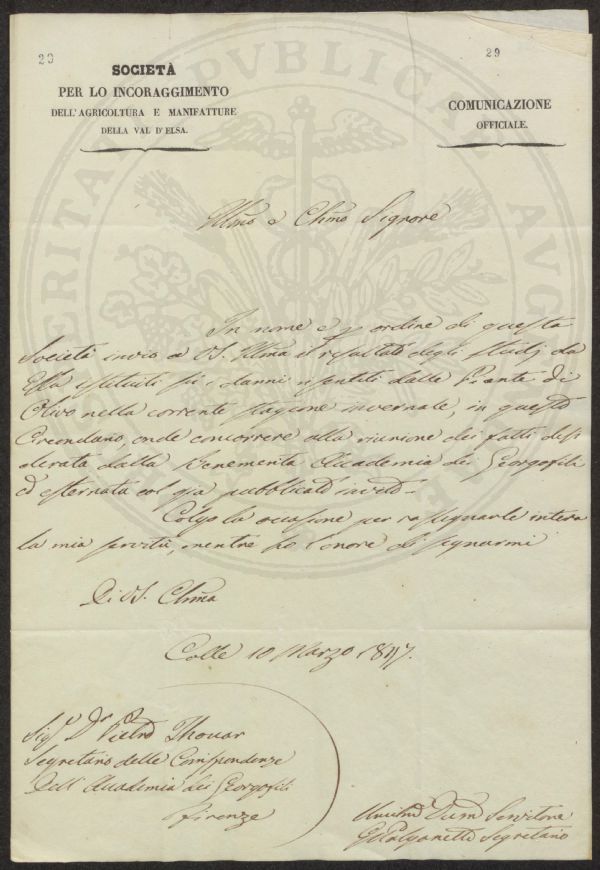 20
29
SOCIETÀ
PER LO INCORAGGIMENTO
DELL'AGRICOLTURA E MANIFATTURE
DELLA VAL D'ELSA.
COMUNICAZIONE
OFFICIALE.
Illmo e Chmo Signore
In nome e p ordine di questa
Società invio a VS. Illma il resultato degli studj da
Essa istituiti su i danni risentiti dalle Piante di
Olivo nella corrente stagione invernale, in questo
Circondario, onde concorrere alla riunione dei fatti desi
derata dalla Benemerita Accademia dei Georgofili
ed esternata col già pubblicato invito.
Colgo la occasione per rassegnarle intera
la mia servitù, mentre ho l'onore di segnarmi
Di VS. Chma
Colle 10 Marzo 1847.
Sigr Dr Pietro Thouar
Segretario delle Corrispondenze
dell'Accademia dei Georgofili
Firenze
Servitore
Segretario